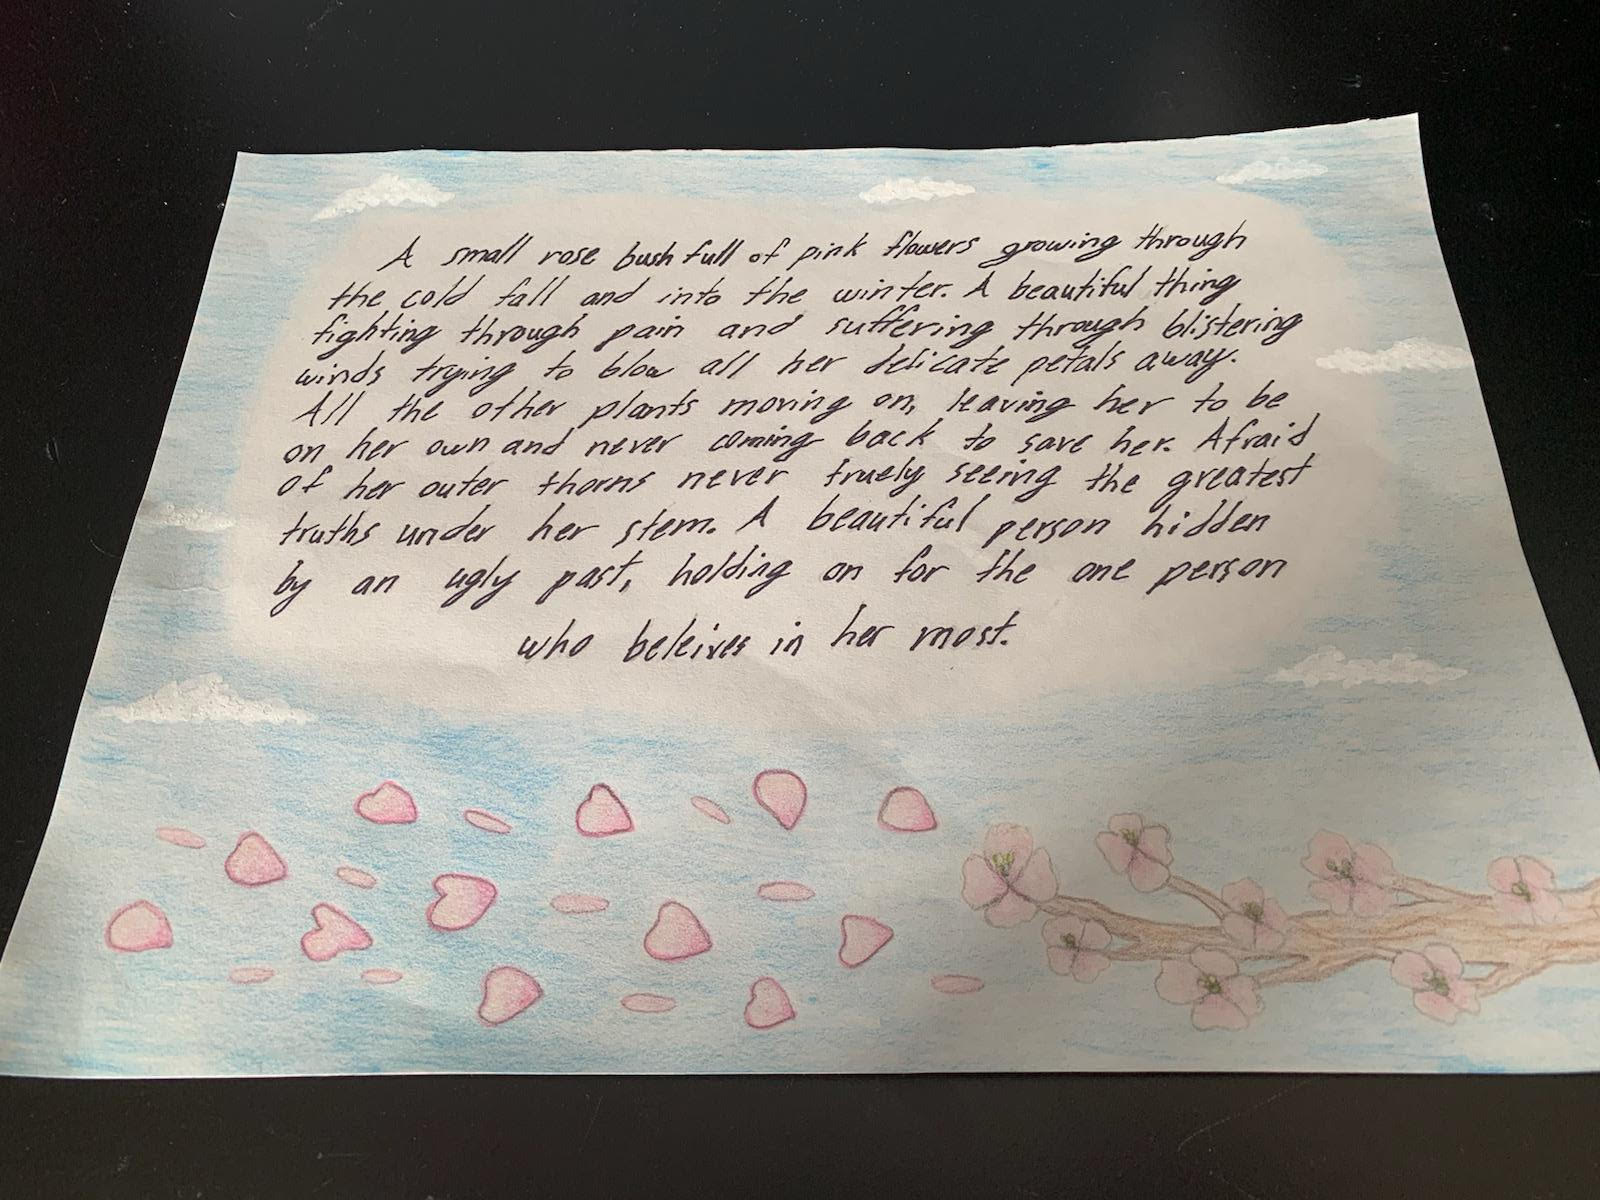 A small rose bush full of pink flowers growing through
the cold fall and into the winter. A beautiful thing
fighting through pain and suffering through blistering
winds trying to blow all her delicate petals away.
All the other plants moving on, leaving her to be
on her own and never coming back to save her. Afraid
of her outer thorns never truely seeing the greatest
truths under her stem. A beautiful person hidden
by an ugly past, holding on for the one person
who beleives in her most.